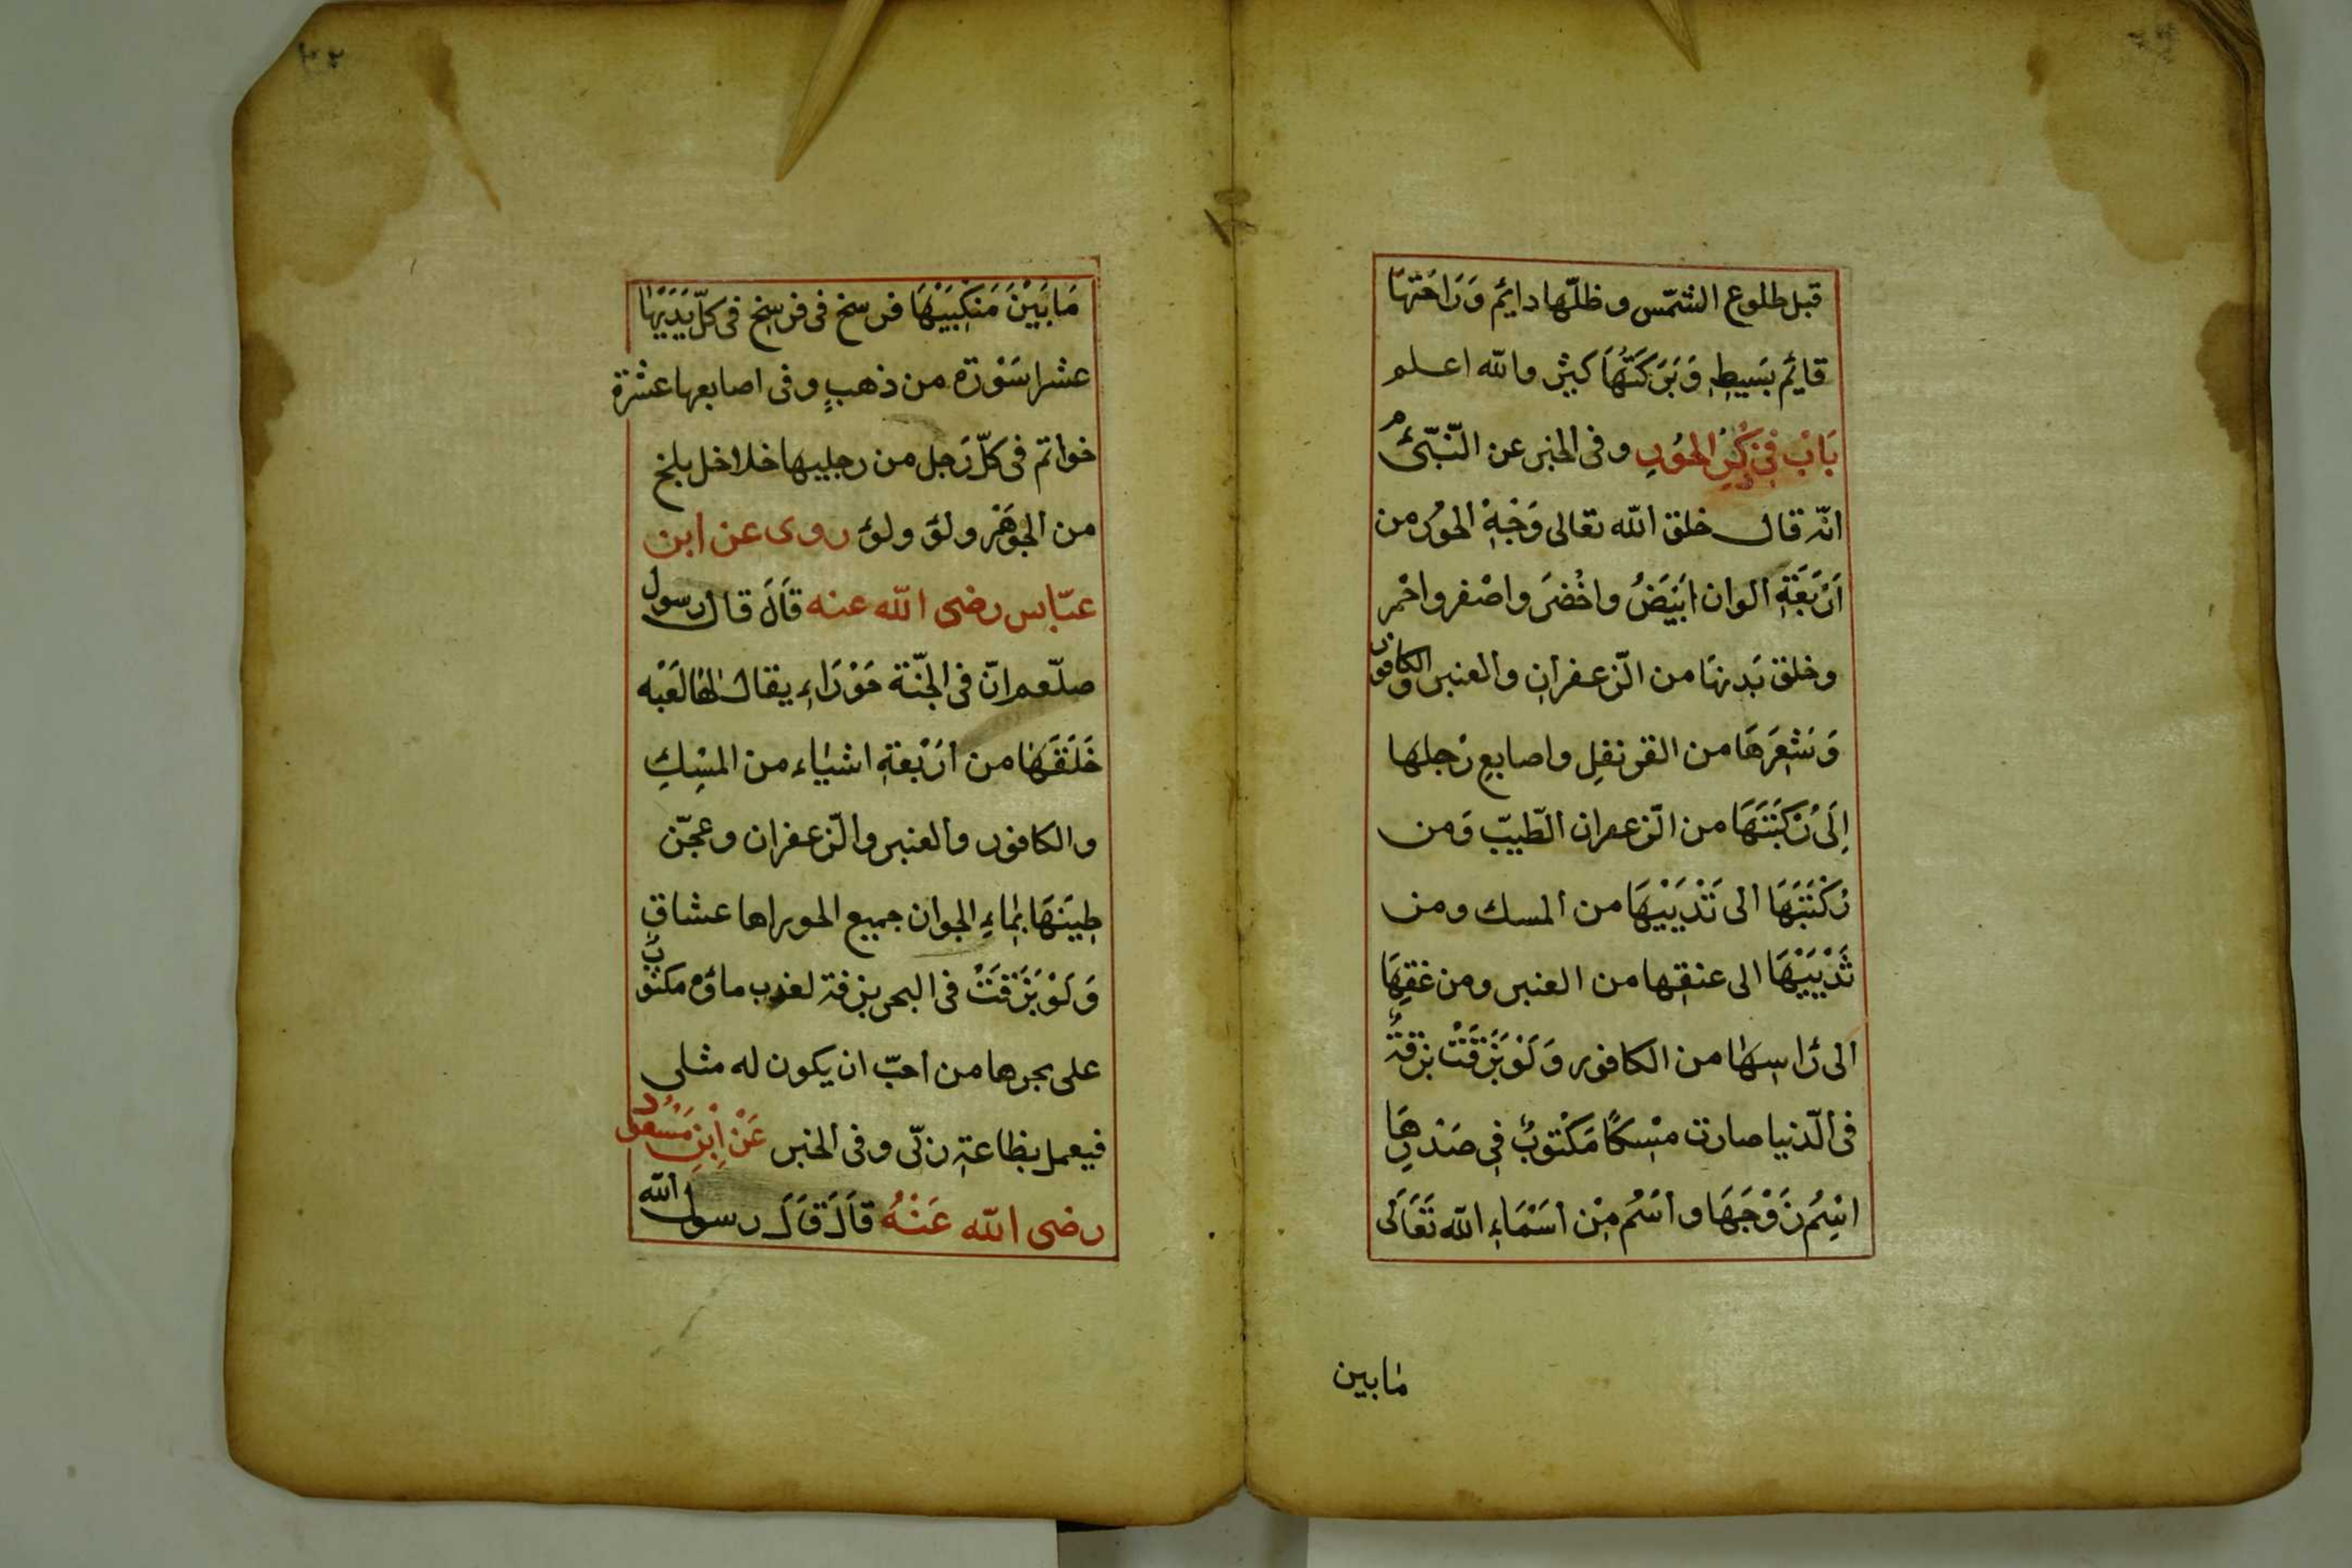 قبل طلوع الشمس وظلّها دايم وَرَاحَتهَا
قايم بسَيطٍ وَبَرَكَتُهَا كبير والله اعلم
بَابْ فِي ذِكْرِ الحُورِ وفى الخبر عن النّبىّ م
انّه قال خلق الله تعالى وَجْهِ الحُور من
اَرْبَعَةِ الوان اَبيَضُ واخْضَرَ واصْفر واحْمر
وخلق بَدنهَا من الزّعفران والعنبر والكافور
وَشَعْرَهَا من القرنفل واصابع رْجلها
اِلَى رُكبَتَهَا من الزّعفران الطّيبّ وَمن
رُكْبَتَهَا الى ثَدْيَيْهَا من المسك ومن
ثَدْيَيْهَا الى عنقها من العنبر ومن عنقهَا
الى رَاسِهَا من الكافور وَلَوْ بَزَقَتْ بزقةً
فى الدّنيا صارت مسْكًا مَكْتوبٌ فِى صَدْرِهَا
اسْمُ زَوْجَهَا واسَمُ مِنْ اسَمَاءِ الله تَعَالَى
مابين
مَا بَيْنَ مَنكِبَيْهَا فرسخ فى فرسخ فى كلّ يَدَيْهَا
عشر اسَوْرَة من ذهبٍ وفى اصابعها عشرة
خواتم فى كلّ رَجل من رجليها خلاخل بلخ
من الجَوْهَر ولؤ ولؤ روى عن ابن
عبّاس رضى الله عنه قَالَ قال رسول
صلّعم انّ فى الجنّة حَوْرَاءِ يقال لها لَعْبَه
خَلَقَهَا من اَرْبعةِ اشياء من المسْكِ
والكافور والعنبر والزّعفران وعجّن
طِينَهَا بِمَاءِ الجوان جميع الحورا ها عشاق
وَلَوْ بَزَقَتْ فى البحر بزقة لعذب ماؤه مكتوبَ
على بحرها من احبّ ان يكون له مثلى
فيعمل بطاعة ربّى وفى الخبر عَنْ اِبْنِ مَسْعُود
رضى الله عَنْهُ قَالَ قَالَ رسول الله